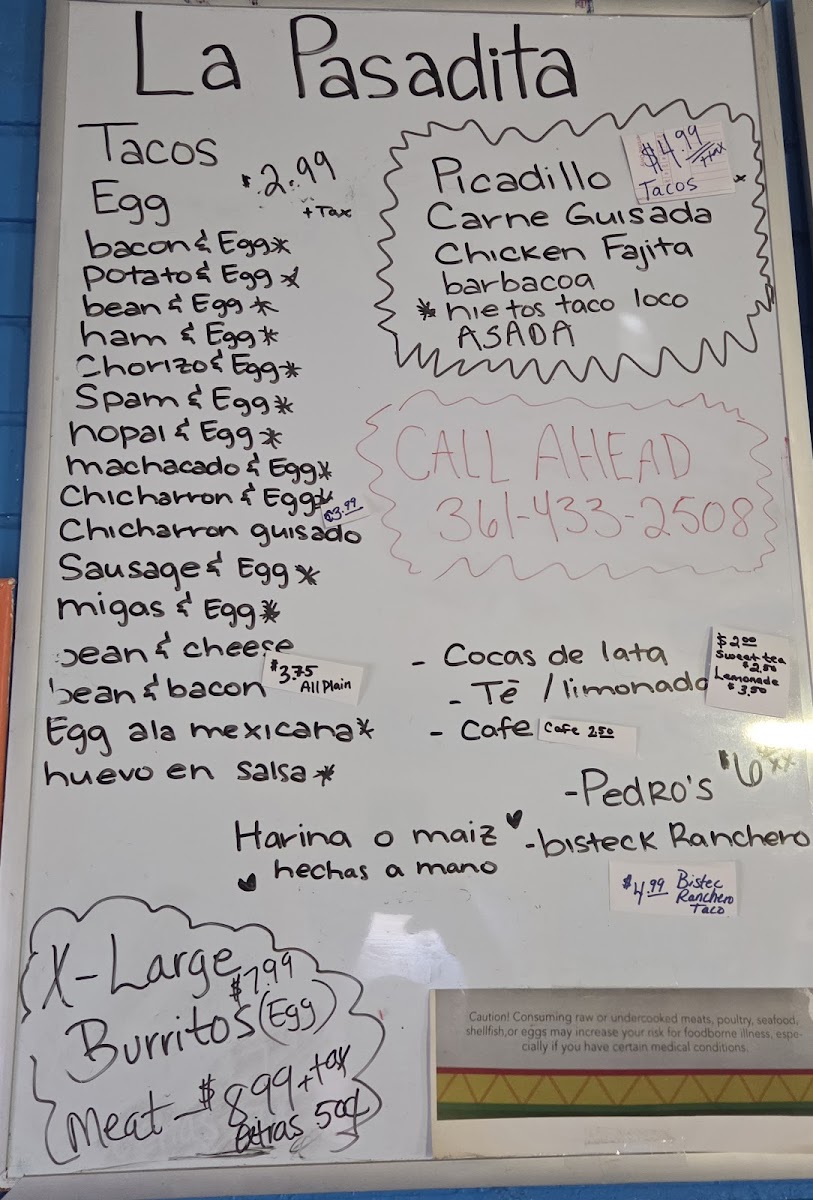 La Pasadita
Tacos
$2.99
+ Tax
Egg
bacon & Egg*
potato & Egg*
bean & Egg*
ham & Egg*
Chorizo & Egg*
Spam & Egg*
nopal & Egg*
machacado & Egg*
Chicharron & Egg*
$3.99
Chicharron guisado
Sausage & Egg*
migas & Egg*
bean & cheese
bean & bacon
$3.75
All Plain
Egg ala mexicana*
huevo en salsa*
$4.99
+ tax
Tacos
Picadillo
Carne Guisada
Chicken Fajita
barbacoa
* nietos taco loco
ASADA
CALL AHEAD
361-433-2508
- Cocas de lata
- Tē / limonada
- Cafe
Cafe 2.50
$2.00
Sweet tea
$2.50
Lemonade
$3.50
- PEDRO'S $6
- bisteck Ranchero
$4.99 Bistec
Ranchero
Taco
Harina o maiz
hechas a mano
X-Large
$7.99
Burritos (Egg)
Meat - $8.99 + tax
extras 50¢
Caution! Consuming raw or undercooked meats, poultry, seafood,
shellfish,or eggs may increase your risk for foodborne illness, espe-
cially if you have certain medical conditions.